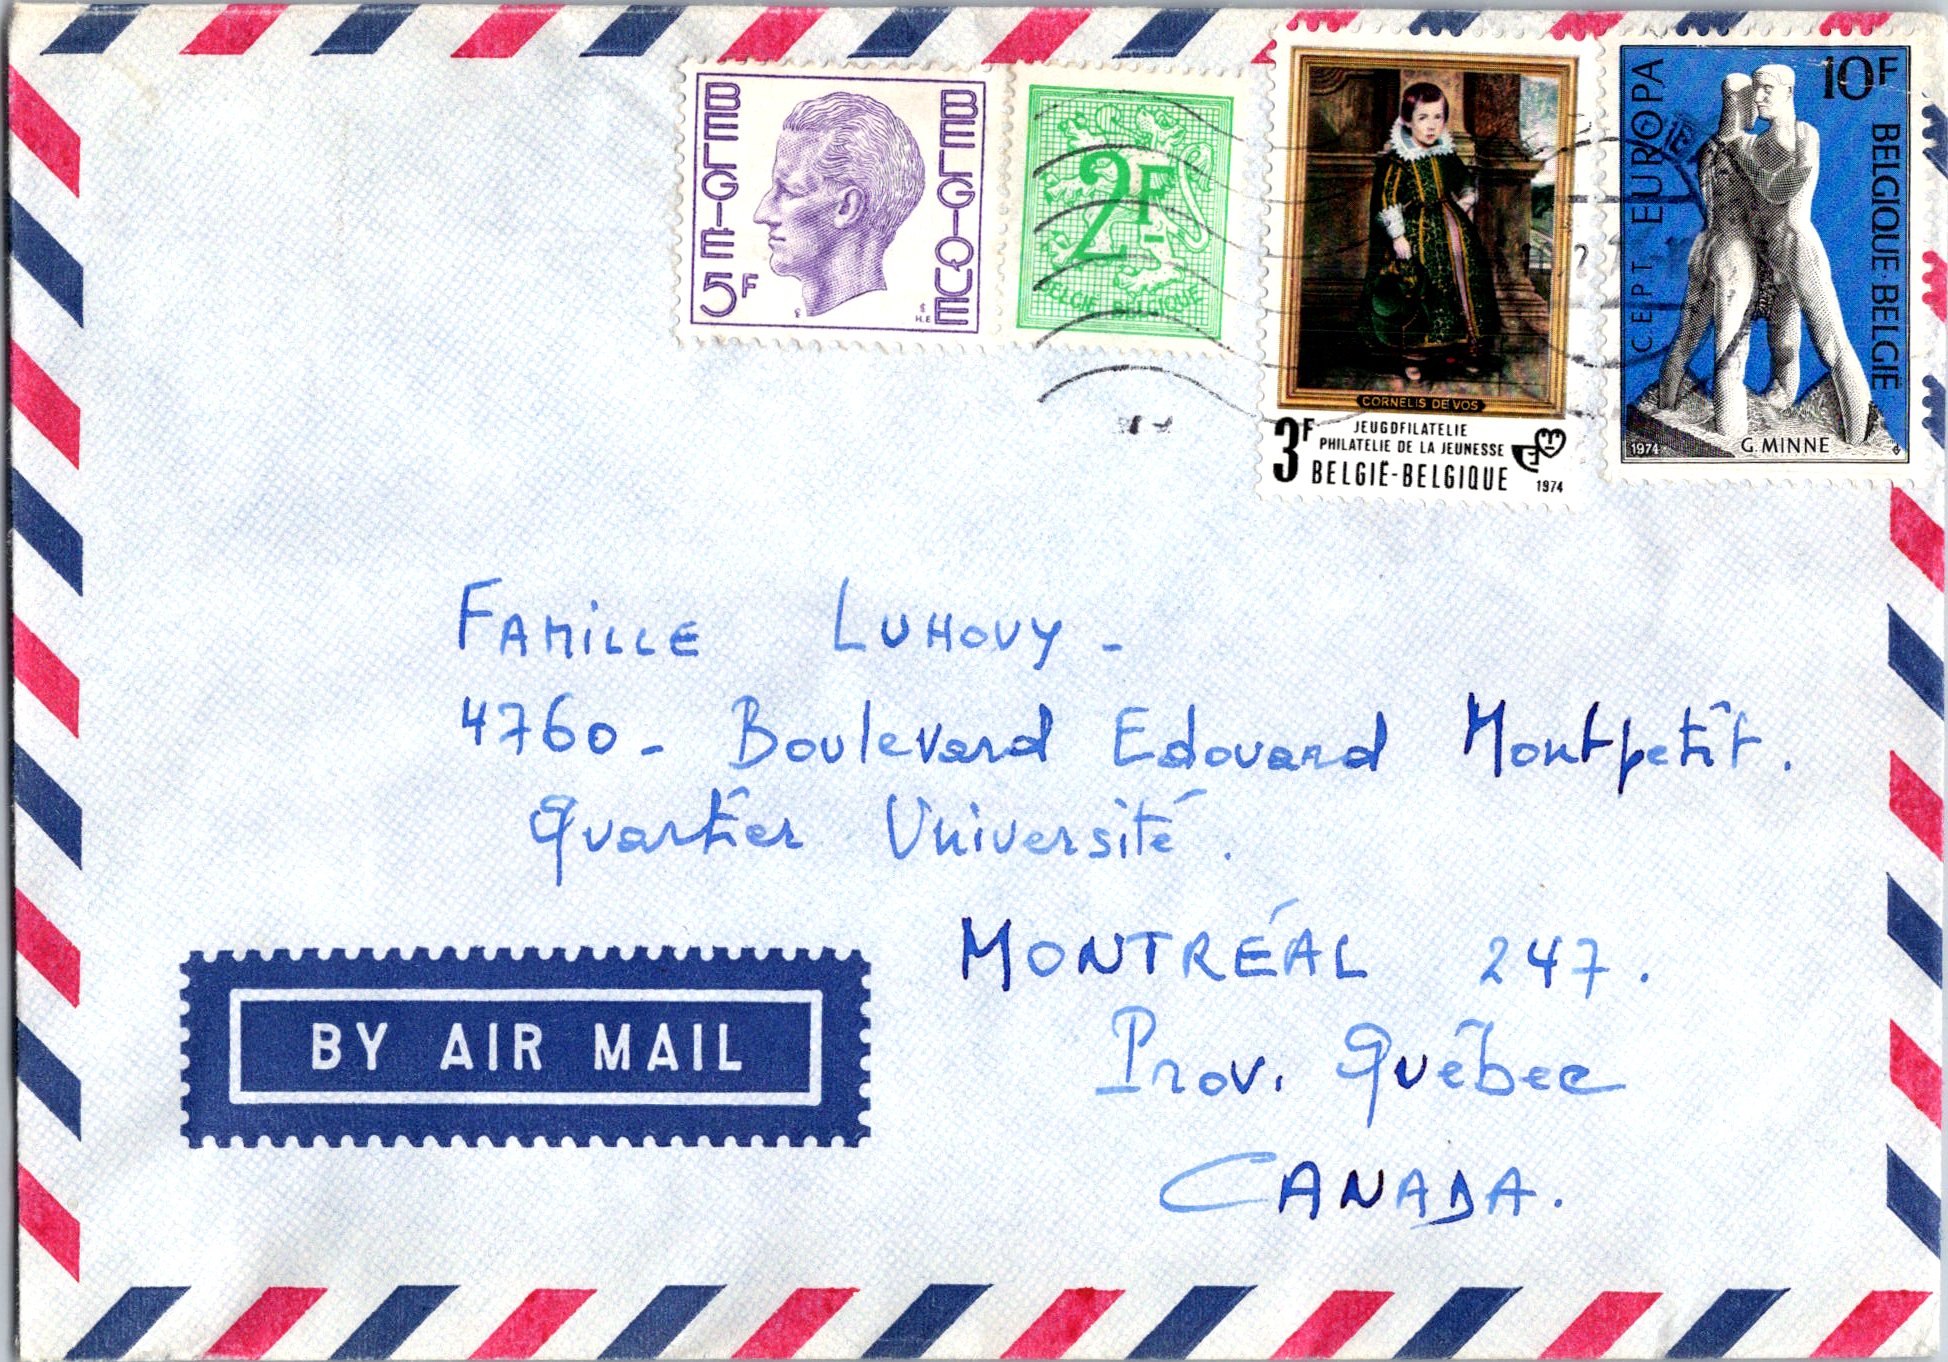 BELGIE
5F
BELGIQUE
2F
BELGIË BELGIQUE
CORNELIS DE VOS
3F
JEUGDFILATELIE
PHILATELIE DE LA JEUNESSE
BELGIË-BELGIQUE
1974
CEPT EUROPA
10F
BELGIQUE·BELGIË
1974
G. MINNE
FAMILLE LUHOVY -
4760 - Boulevard Edouard Montpetit.
Quartier Université.
MONTRÉAL 247.
Prov. Québec
CANADA.
BY AIR MAIL